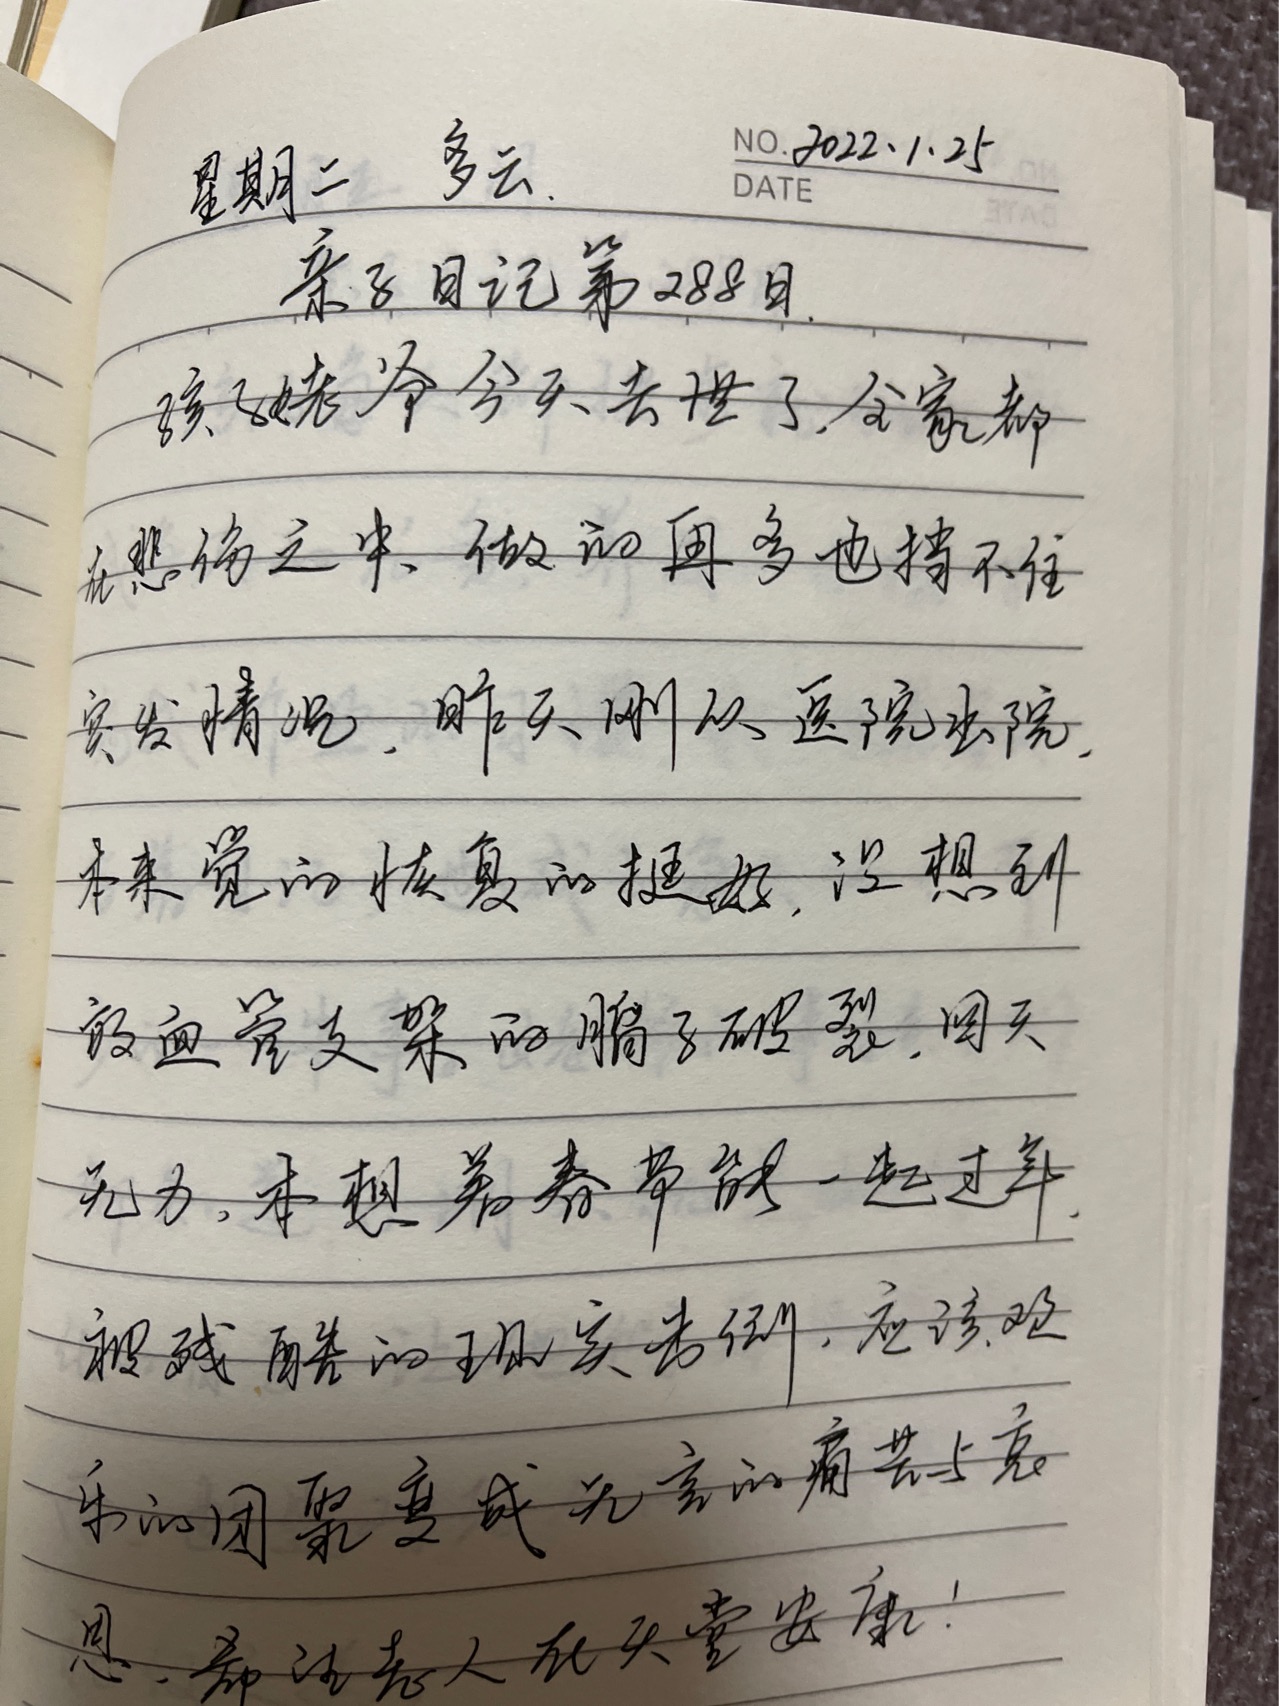 星期二 多云. NO. 2022.1.25
DATE
亲子日记第288日.
孩子姥爷今天去世了.全家都
在悲伤之中、做的再多也挡不住
突发情况.昨天刚从医院出院.
本来觉的恢复的挺好.没想到
放血管支架的膈子破裂.回天
无力.本想着春节能一起过年.
被残酷的现实击倒.应该欢
乐的团聚变成无言的痛苦与哀
思.都注老人在天堂安康!